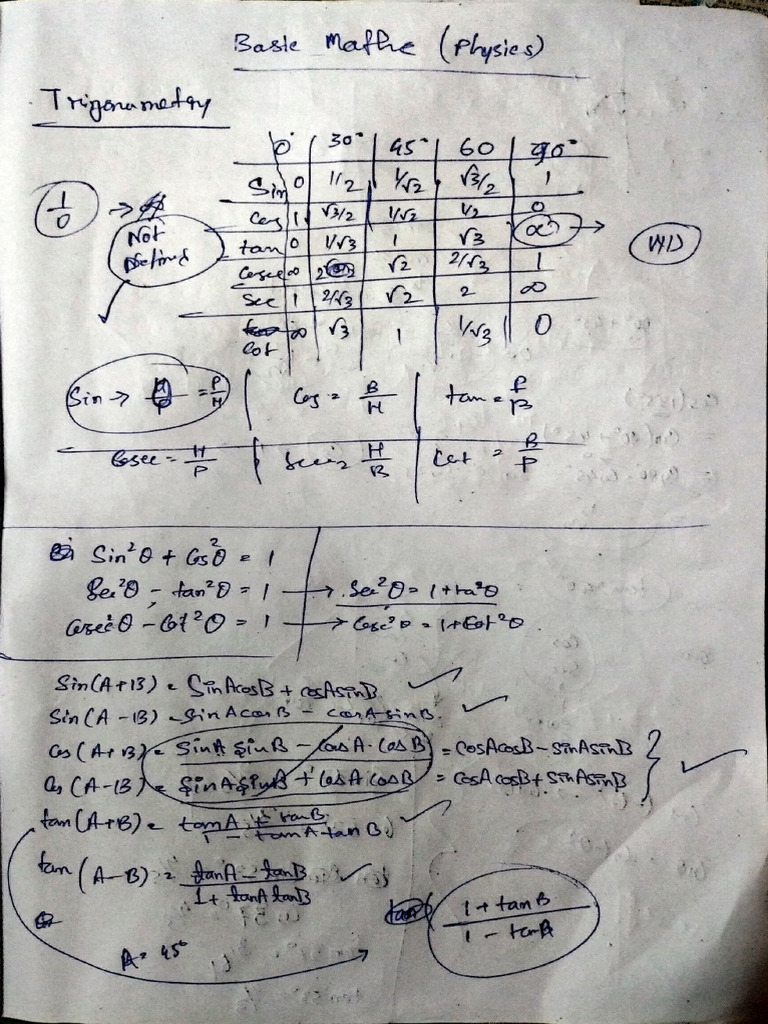 Basic Maths (Physics)
Trigonometry
0° 30° 45° 60 90°
Sin 0 1/2 1/√2 √3/2 1
1/0 → Not Defined
Cos 1 √3/2 1/√2 1/2 0
tan 0 1/√3 1 √3 ∝ → N/D
Cosec ∞ 2 √2 2/√3 1
Sec 1 2/√3 √2 2 ∞
Cot ∞ √3 1 1/√3 0
Sin → = P/H | Cos = B/H | tan = P/B
Cosec = H/P | Sec = H/B | Cot = B/P
Sin²θ + Cos²θ = 1
Sec²θ - tan²θ = 1 → Sec²θ = 1 + ta²θ
Cosec²θ - Cot²θ = 1 → Cosec²θ = 1 + Cot²θ.
Sin(A+B) = SinAcosB + cosAsinB ✓
Sin(A-B) = SinAcosB - cosAsinB. ✓
Cos(A+B) = SinA SinB - CosA.CosB = CosAcosB - SinAsinB
Cos(A-B) = SinASinB + CosACosB = CosAcosB + SinAsinB } ✓
tan(A+B) = tanA + tanB / 1 - tanA tanB ✓
tan(A-B) = tanA - tanB / 1 + tanA tanB ✓
1 + tanB / 1 - tanB
A = 45°